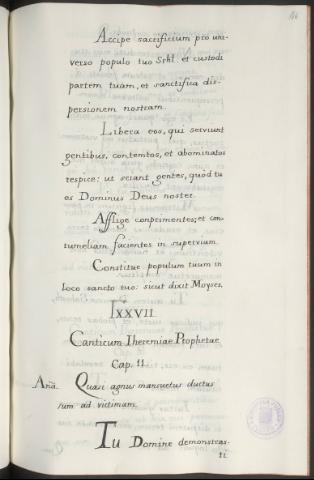 Accipe sacrificium pro uni-
verso populo tuo Srhl. et custodi
partem tuam, et sanctifica dis-
persionem nostram.
Libera eos, qui serviunt
gentibus, contemtos, et abominatos
respice: ut sciant gentes, quòd tu
es Dominus Deus noster.
Afflige conprimentes, et con-
tumeliam facientes in superviam.
Constitue populum tuum in
loco sancto tuo: sicut dixit Moyses.
LXXVII.
Canticum Iheremiae Prophetae
Cap. 11.
Anã. Quasi agnus mansuetus ductus
sum ad victimam.
Tu Domine demonstras-
ti